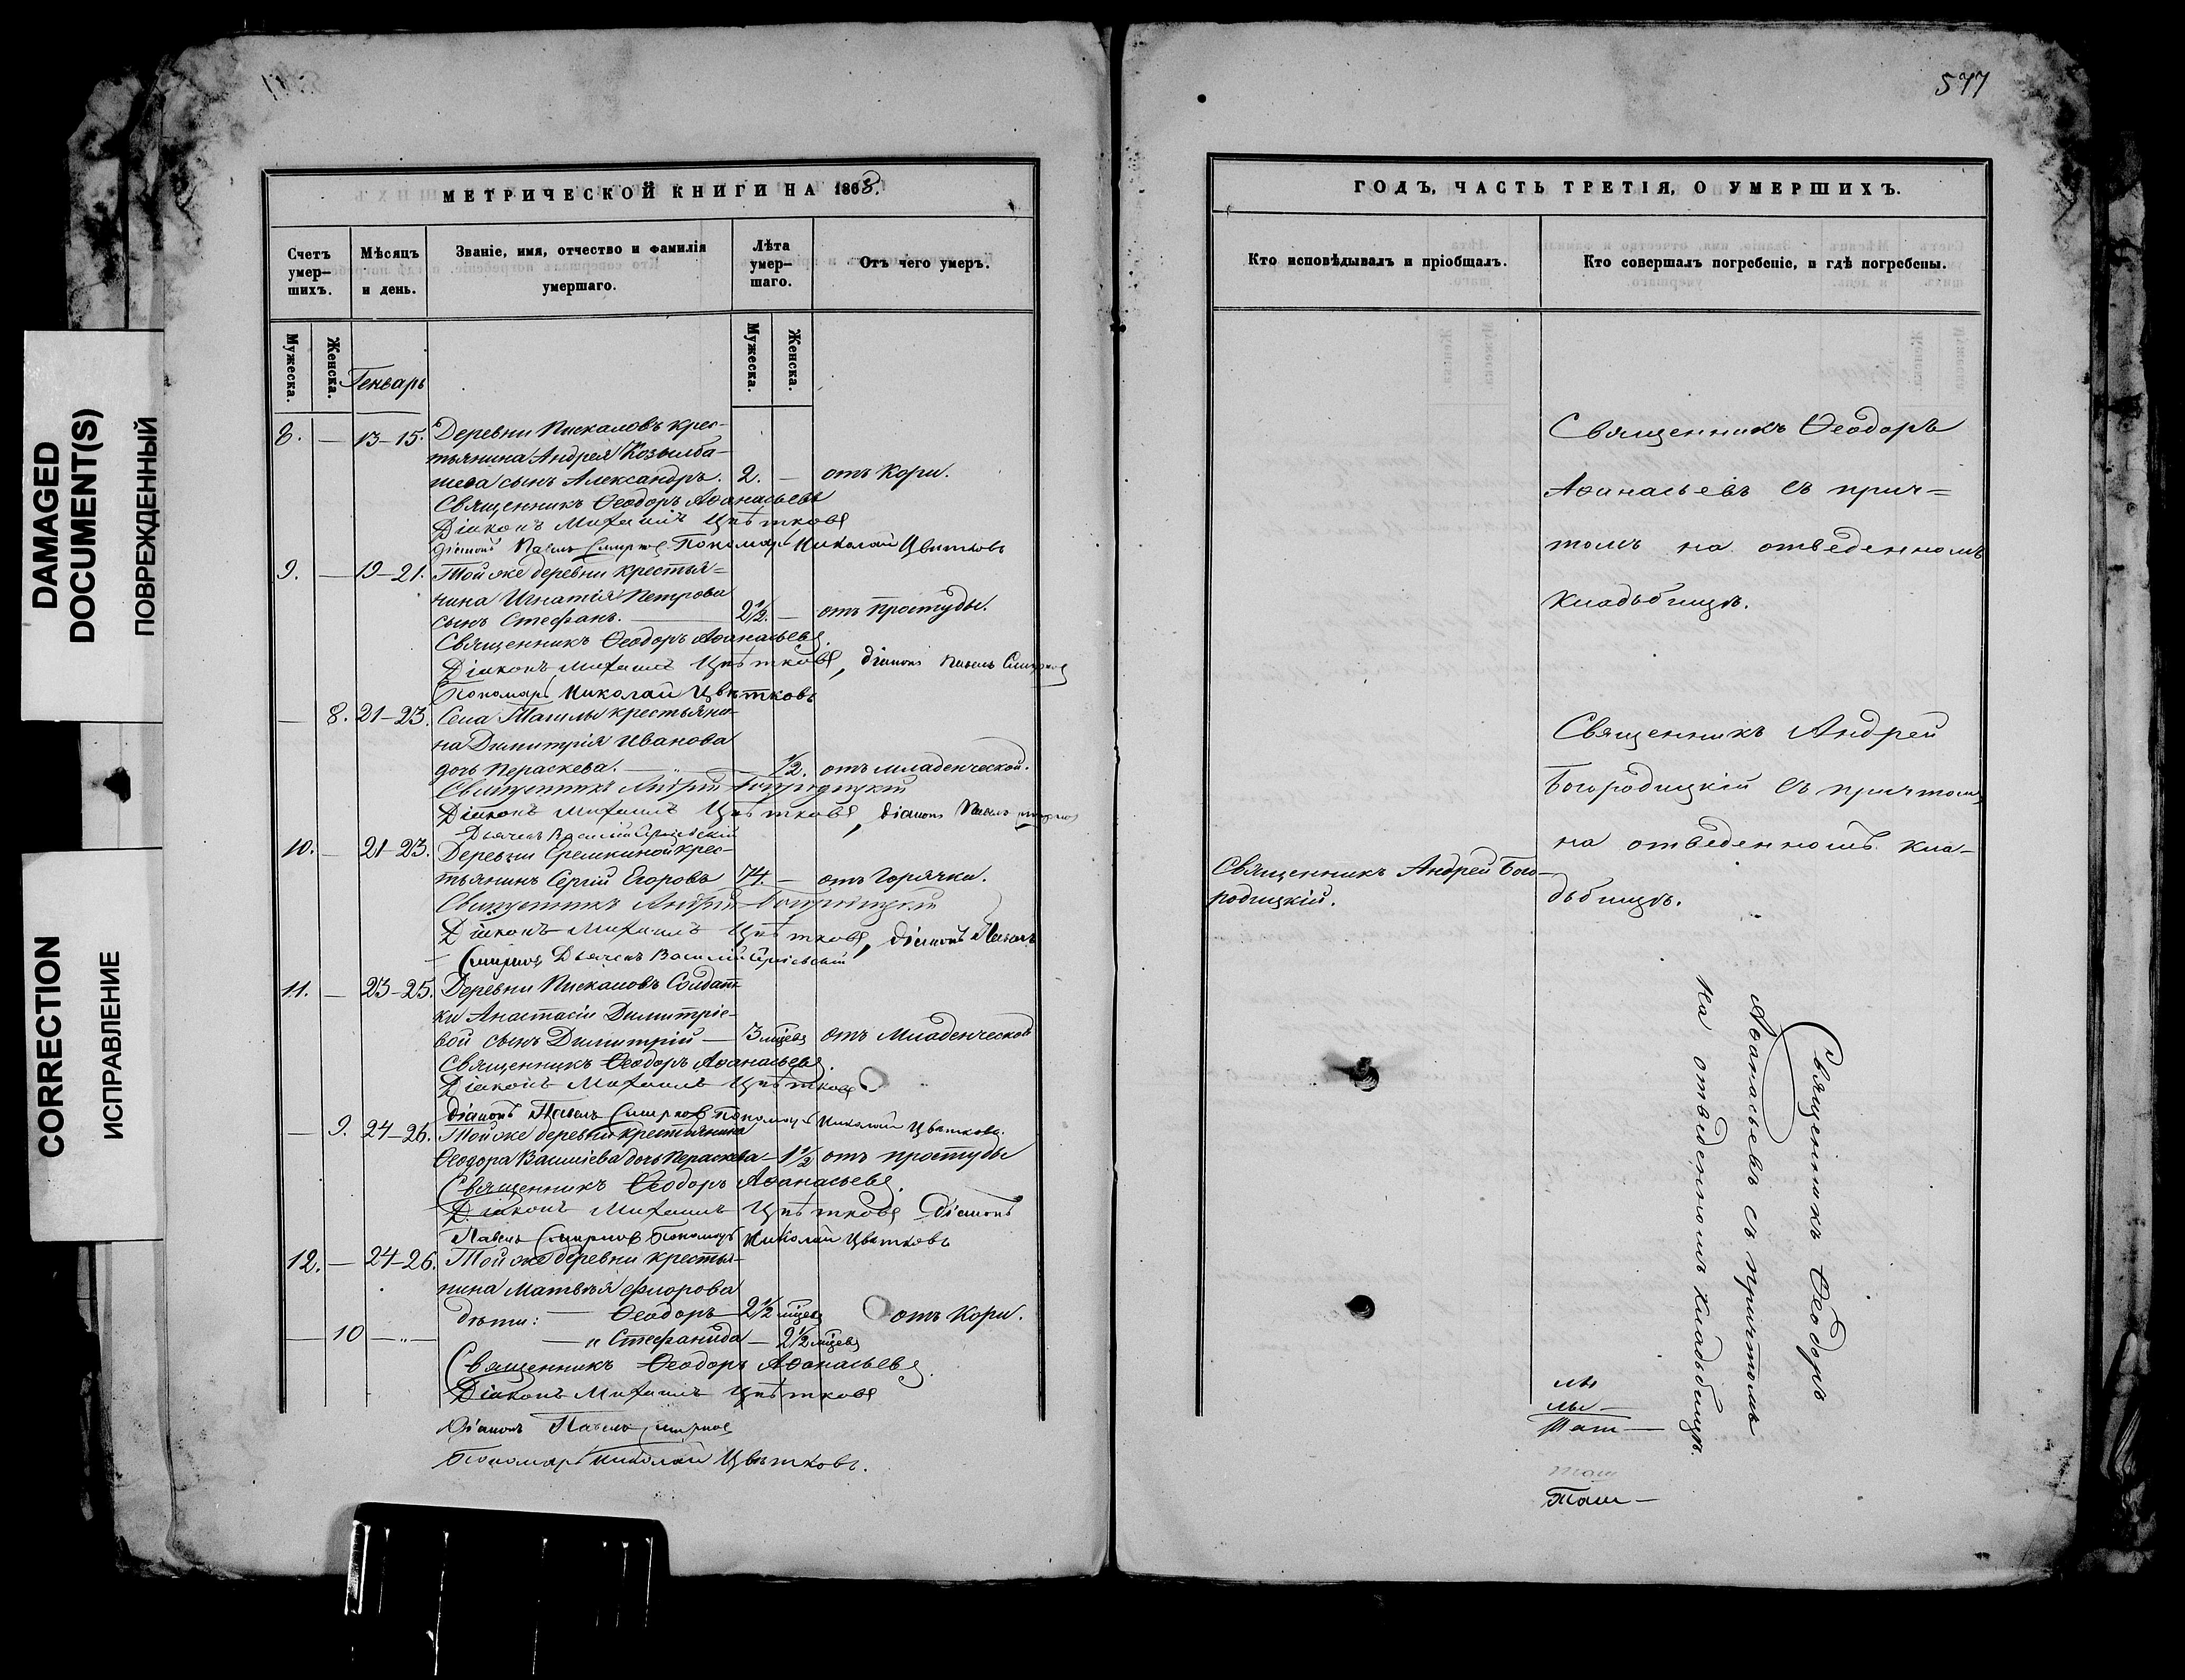 577
DAMAGED
DOCUMENT(S)
ПОВРЕЖДЕННЫЙ
CORRECTION
ИСПРАВЛЕНИЕ
МЕТРИЧЕСКОЙ КНИГИ НА 1868.
Счетъ умер-шихъ.
Мѣсяцъ и день.
Званіе, имя, отчество и фамилія умершаго.
Лѣта умер-шаго.
Отъ чего умеръ.
Мужеска.
Женска.
Генварь
Мужеска.
Женска.
8. — 13-15. Деревни Пискаловъ крес-
тьянина Андрея Козылба-
шева сынъ Александръ. 2. — отъ Кори.
Священникъ Ѳеодоръ Аѳанасьевъ
Діаконъ Михаилъ Цвѣтковъ
діаконъ Павелъ Смирновъ Пономарь Николай Цвѣтковъ
9. — 19-21. Той же деревни крестья=
нина Игнатія Петрова
сынъ Стефанъ. — 2½. — отъ простуды.
Священникъ Ѳеодоръ Аѳанасьевъ.
Діаконъ Михаилъ Цвѣтковъ, діаконъ Павелъ Смирновъ
Пономарь Николай Цвѣтковъ
— 8. 21-23. Села Тагилы крестьяни-
на Димитрія Иванова
дочь Параскева. — ½. отъ младенческой.
Священникъ Андрей Богородицкій
Діаконъ Михаилъ Цвѣтковъ, діаконъ Павелъ Смирновъ
Дьячекъ Василій
10. — 21-23. Деревни Еремкиной крес-
тьянинъ Сергій Егоровъ 74. — отъ Горячки.
Священникъ Андрей Богородицкій
Діаконъ Михаилъ Цвѣтковъ, діаконъ Павелъ
Смирновъ Дьячекъ Василій
11. — 23-25. Деревни Пискаловъ Солдат-
ки Анастасіи Димитріе-
вой сынъ Димитрій — 3 мѣсцъ отъ Младенческой
Священникъ Ѳеодоръ Аѳанасьевъ.
Діаконъ Михаилъ Цвѣтковъ
діаконъ Павелъ Смирновъ пономарь Николай Цвѣтковъ.
— 9. 24-26. Той же деревни крестьянина
Ѳеодора Василіева дочь Параскева — 1½ отъ простуды
Священникъ Ѳеодоръ Аѳанасьевъ.
Діаконъ Михаилъ Цвѣтковъ діаконъ
Павелъ Смирновъ Пономарь Николай Цвѣтковъ
12. — 24-26. Той же деревни крестья-
нина Матвѣя Флорова
дѣти: — Ѳеодоръ — 2½ мѣсцъ отъ Кори.
— 10 — „ — — и Стефанида — 2½ мѣсцъ
Священникъ Ѳеодоръ Аѳанасьевъ.
Діаконъ Михаилъ Цвѣтковъ
Діаконъ Павелъ Смирновъ
Пономарь Николай Цвѣтковъ.
ГОДЪ, ЧАСТЬ ТРЕТІЯ, О УМЕРШИХЪ.
Кто исповѣдывалъ и пріобщалъ.
Кто совершалъ погребеніе, и гдѣ погребены.
Священникъ Ѳеодоръ
Аѳанасьевъ съ прич=
томъ на отведенномъ
кладбищѣ.
Священникъ Андрей
Богородицкій съ причтомъ
на отведенномъ кла-
дбищѣ.
Священникъ Андрей Бого-
родицкій.
Священникъ Ѳеодоръ
Аѳанасьевъ съ причтомъ
на отведенномъ кладбищѣ.